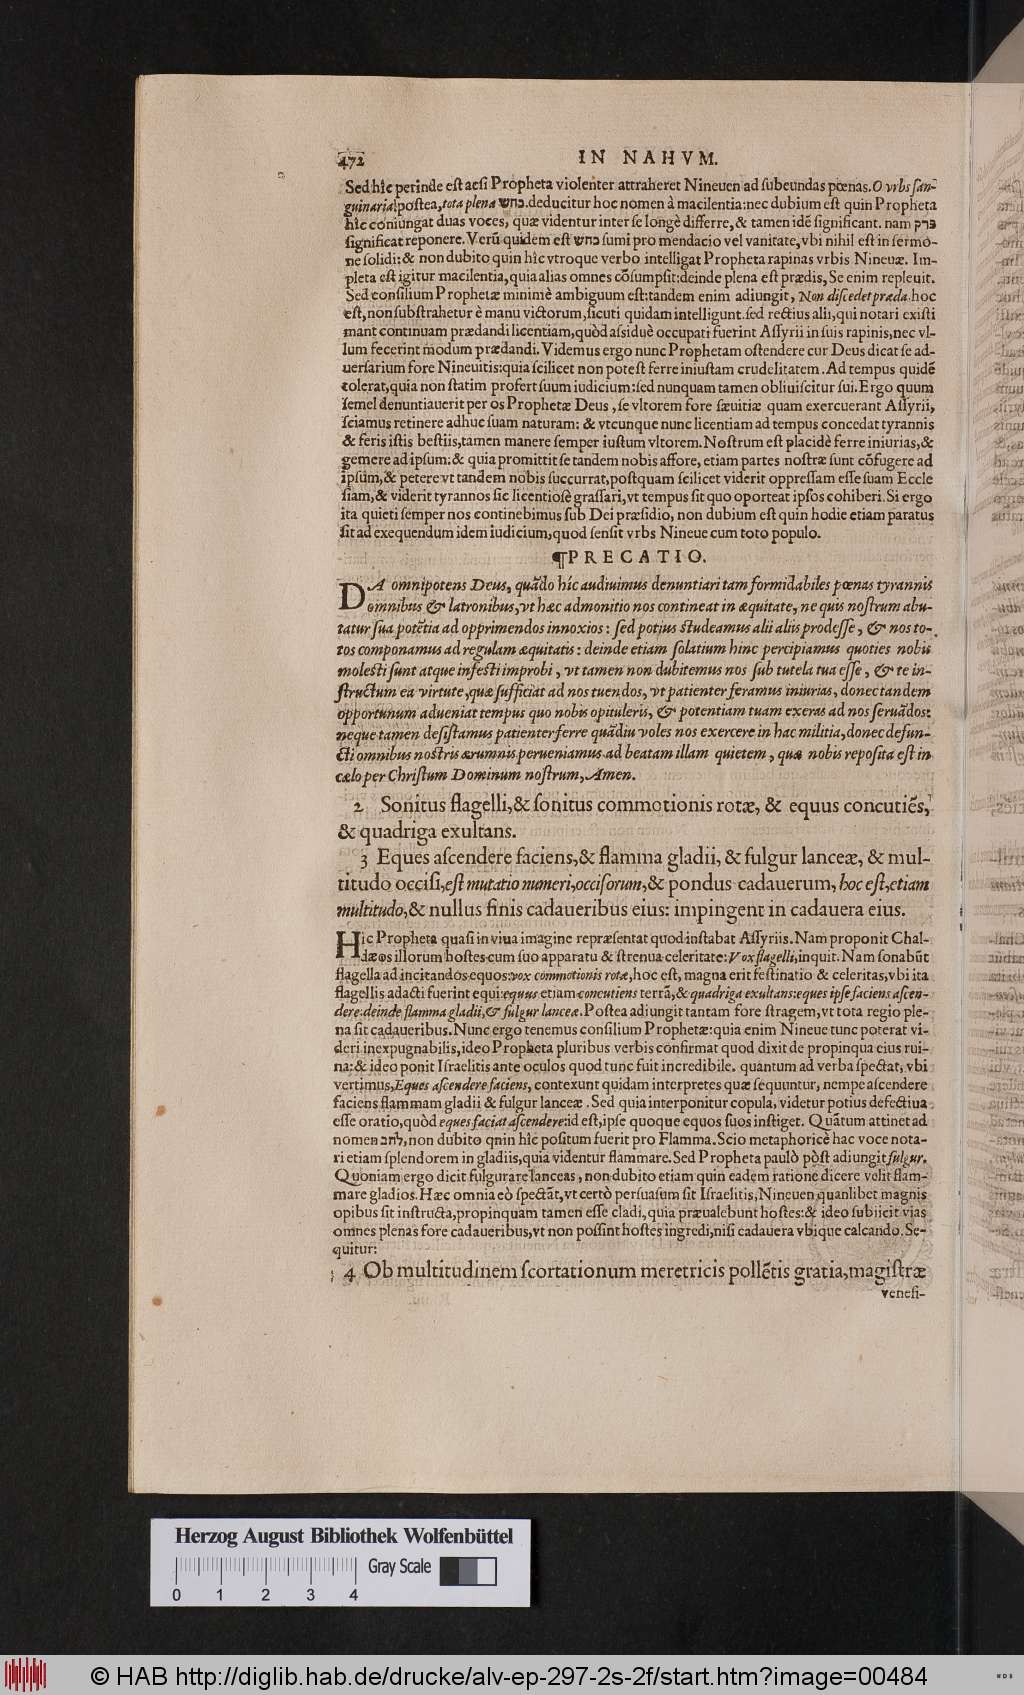 472 IN NAHVM.
Sed hîc perinde est acsi Propheta violenter attraheret Nineuen ad subeundas pœnas. O vrbs san-
guinaria: postea, tota plena כחש. deducitur hoc nomen à macilentia: nec dubium est quin Propheta
hîc coniungat duas voces, quæ videntur inter se longè differre, & tamen idẽ significant. nam פרק
significat reponere. Verũ quidem est כחש sumi pro mendacio vel vanitate, vbi nihil est in sermo-
ne solidi: & non dubito quin hîc vtroque verbo intelligat Propheta rapinas vrbis Nineuæ. Im-
pleta est igitur macilentia, quia alias omnes cõsumpsit: deinde plena est prædis, Se enim repleuit.
Sed consilium Prophetæ minimè ambiguum est: tandem enim adiungit, Non discedet præda. hoc
est, non substrahetur è manu victorum, sicuti quidam intelligunt. sed rectius alii, qui notari existi
mant continuam prædandi licentiam, quòd assiduè occupati fuerint Assyrii in suis rapinis, nec vl-
lum fecerint modum prædandi. Videmus ergo nunc Prophetam ostendere cur Deus dicat se ad-
uersarium fore Nineuitis: quia scilicet non potest ferre iniustam crudelitatem. Ad tempus quidẽ
tolerat, quia non statim profert suum iudicium: sed nunquam tamen obliuiscitur sui. Ergo quum
semel denuntiauerit per os Prophetæ Deus, se vltorem fore sæuitiæ quam exercuerant Assyrii,
sciamus retinere adhuc suam naturam: & vtcunque nunc licentiam ad tempus concedat tyrannis
& feris istis bestiis, tamen manere semper iustum vltorem. Nostrum est placidè ferre iniurias, &
gemere ad ipsum: & quia promittit se tandem nobis affore, etiam partes nostræ sunt cõfugere ad
ipsum, & petere vt tandem nobis succurrat, postquam scilicet viderit oppressam esse suam Eccle
siam, & viderit tyrannos sic licentiosè grassari, vt tempus sit quo oporteat ipsos cohiberi. Si ergo
ita quieti semper nos continebimus sub Dei præsidio, non dubium est quin hodie etiam paratus
sit ad exequendum idem iudicium, quod sensit vrbs Nineue cum toto populo.
¶PRECATIO.
DA omnipotens Deus, quãdo hîc audiuimus denuntiari tam formidabiles pœnas tyrannis
omnibus & latronibus, vt hæc admonitio nos contineat in æquitate, ne quis nostrum abu-
tatur sua potẽtia ad opprimendos innoxios: sed potius studeamus alii aliis prodesse, & nos to-
tos componamus ad regulam æquitatis: deinde etiam solatium hinc percipiamus quoties nobis
molesti sunt atque infesti improbi, vt tamen non dubitemus nos sub tutela tua esse, & te in-
structum ea virtute, quæ sufficiat ad nos tuendos, vt patienter feramus iniurias, donec tandem
opportunum adueniat tempus quo nobis opituleris, & potentiam tuam exeras ad nos seruãdos:
neque tamen desistamus patienter ferre quãdiu voles nos exercere in hac militia, donec defun-
cti omnibus nostris ærumnis perueniamus ad beatam illam quietem, quæ nobis reposita est in
cælo per Christum Dominum nostrum, Amen.
2 Sonitus flagelli, & sonitus commotionis rotæ, & equus concutiẽs,
& quadriga exultans.
3 Eques ascendere faciens, & flamma gladii, & fulgur lanceæ, & mul-
titudo occisi, est mutatio numeri, occisorum, & pondus cadauerum, hoc est, etiam
multitudo, & nullus finis cadaueribus eius: impingent in cadauera eius.
HIc Propheta quasi in viua imagine repræsentat quod instabat Assyriis. Nam proponit Chal-
dæos illorum hostes cum suo apparatu & strenua celeritate: Vox flagelli, inquit. Nam sonabũt
flagella ad incitandos equos: vox commotionis rotæ, hoc est, magna erit festinatio & celeritas, vbi ita
flagellis adacti fuerint equi: equus etiam concutiens terrã, & quadriga exultans: eques ipse faciens ascen-
dere: deinde flamma gladii, & fulgur lanceæ. Postea adiungit tantam fore stragem, vt tota regio ple-
na sit cadaueribus. Nunc ergo tenemus consilium Prophetæ: quia enim Nineue tunc poterat vi-
deri inexpugnabilis, ideo Propheta pluribus verbis confirmat quod dixit de propinqua eius rui-
na: & ideo ponit Israelitis ante oculos quod tunc fuit incredibile. quantum ad verba spectat, vbi
vertimus, Eques ascendere faciens, contexunt quidam interpretes quæ sequuntur, nempe ascendere
faciens flammam gladii & fulgur lanceæ. Sed quia interponitur copula, videtur potius defectiua
esse oratio, quòd eques faciat ascendere: id est, ipse quoque equos suos instiget. Quãtum attinet ad
nomen להב, non dubito qnin hîc positum fuerit pro Flamma. Scio metaphoricè hac voce nota-
ri etiam splendorem in gladiis, quia videntur flammare. Sed Propheta paulò pòst adiungit fulgur.
Quoniam ergo dicit fulgurare lanceas, non dubito etiam quin eadem ratione dicere velit flam-
mare gladios. Hæc omnia eò spectãt, vt certò persuasum sit Israelitis, Nineuen quanlibet magnis
opibus sit instructa, propinquam tamen esse cladi, quia præualebunt hostes: & ideo subiicit vias
omnes plenas fore cadaueribus, vt non possint hostes ingredi, nisi cadauera vbique calcando. Se-
quitur:
4 Ob multitudinem scortationum meretricis pollẽtis gratia, magistræ
venefi-
Herzog August Bibliothek Wolfenbüttel
Gray Scale
0 1 2 3 4
© HAB http://diglib.hab.de/drucke/alv-ep-297-2s-2f/start.htm?image=00484